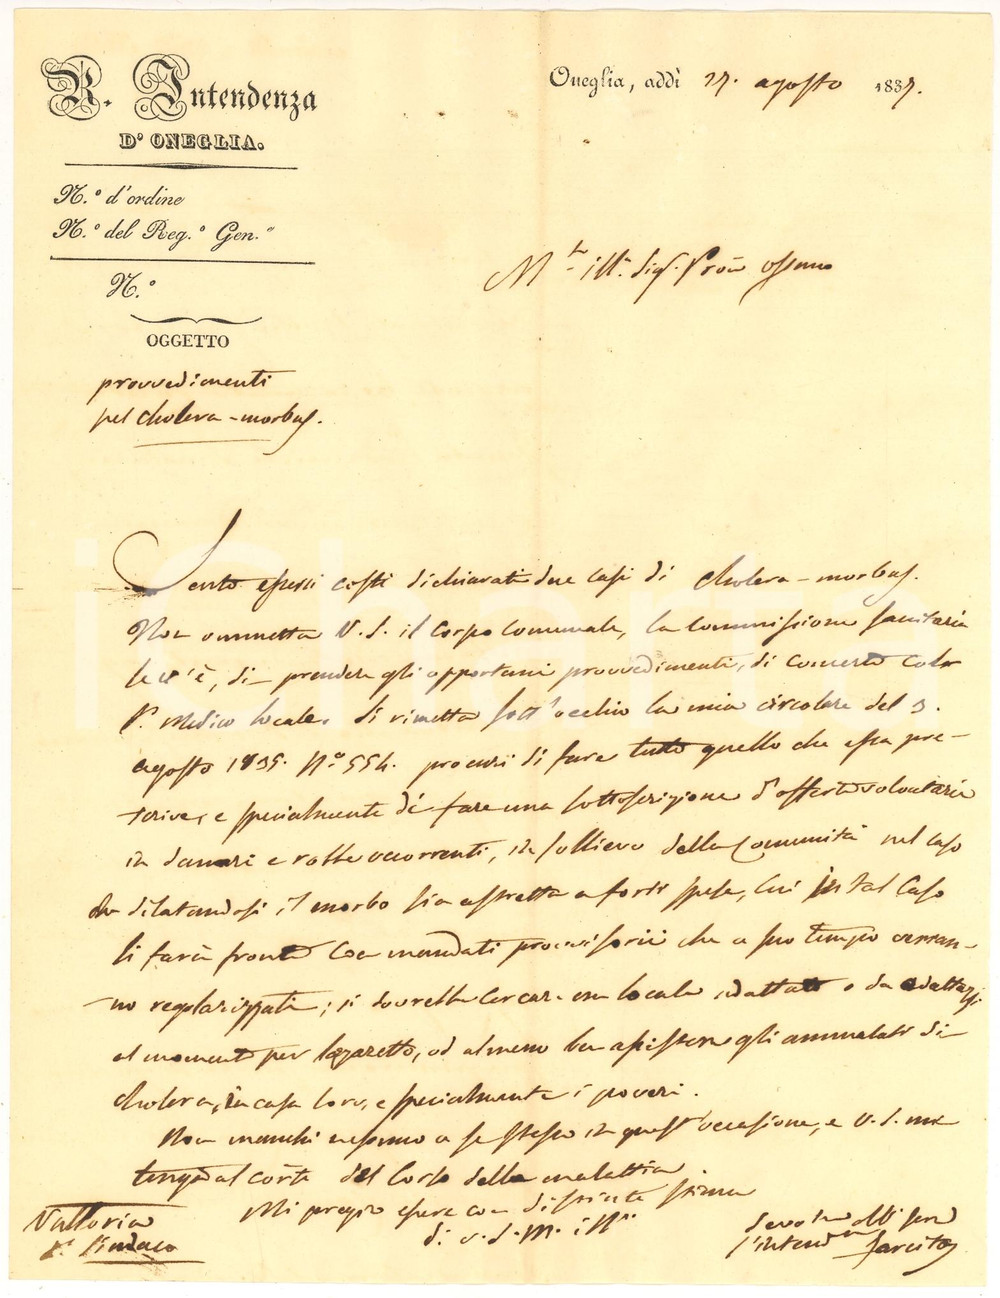 R. Intendenza
D' ONEGLIA.
N.° d'ordine
N.° del Reg.° Gen.°
N.°
OGGETTO
provvedimenti
pel cholera-morbus.
Oneglia, addì 27. agosto 1837.
M.to ill. Sig. Sig. Pron. Ossmo
Sento essersi costì dichiarati due casi di cholera-morbus.
Non ommetta V. S. il Corpo Comunale, la Commissione Sanitaria
se v'è, di prendere gli opportuni provvedimenti, di concerto col
S. Medico locale, si rimetta sott'occhio la mia circolare del 3.
agosto 1835. N.° 554. procuri di fare tutto quello che essa pre-
scrive, e specialmente di fare una sottoscrizione d'offerte volontarie
in danari e robbe occorrenti, in sollievo della Comunità nel caso
che dilatandosi il morbo sia astretta a forti spese, cui in tal caso
si farà fronte con mandati provvisorii che a suo tempo verran-
no regolarizzati; si dovrebbe cercare un locale adattato o da adattarsi
al momento per lazzaretto, od almeno ben assistere gli ammalati di
cholera, in casa loro, e specialmente i poveri.
Non manchi nessuno a se stesso in quest'occasione, e V. S. mi
tenga al corte del Corso della malattia.
Mi pregio essere con distinta stima
di V. S. M. ill.
Valloria
S. Sindaco
Devot.mo Obb. Serv.
l'Intend.